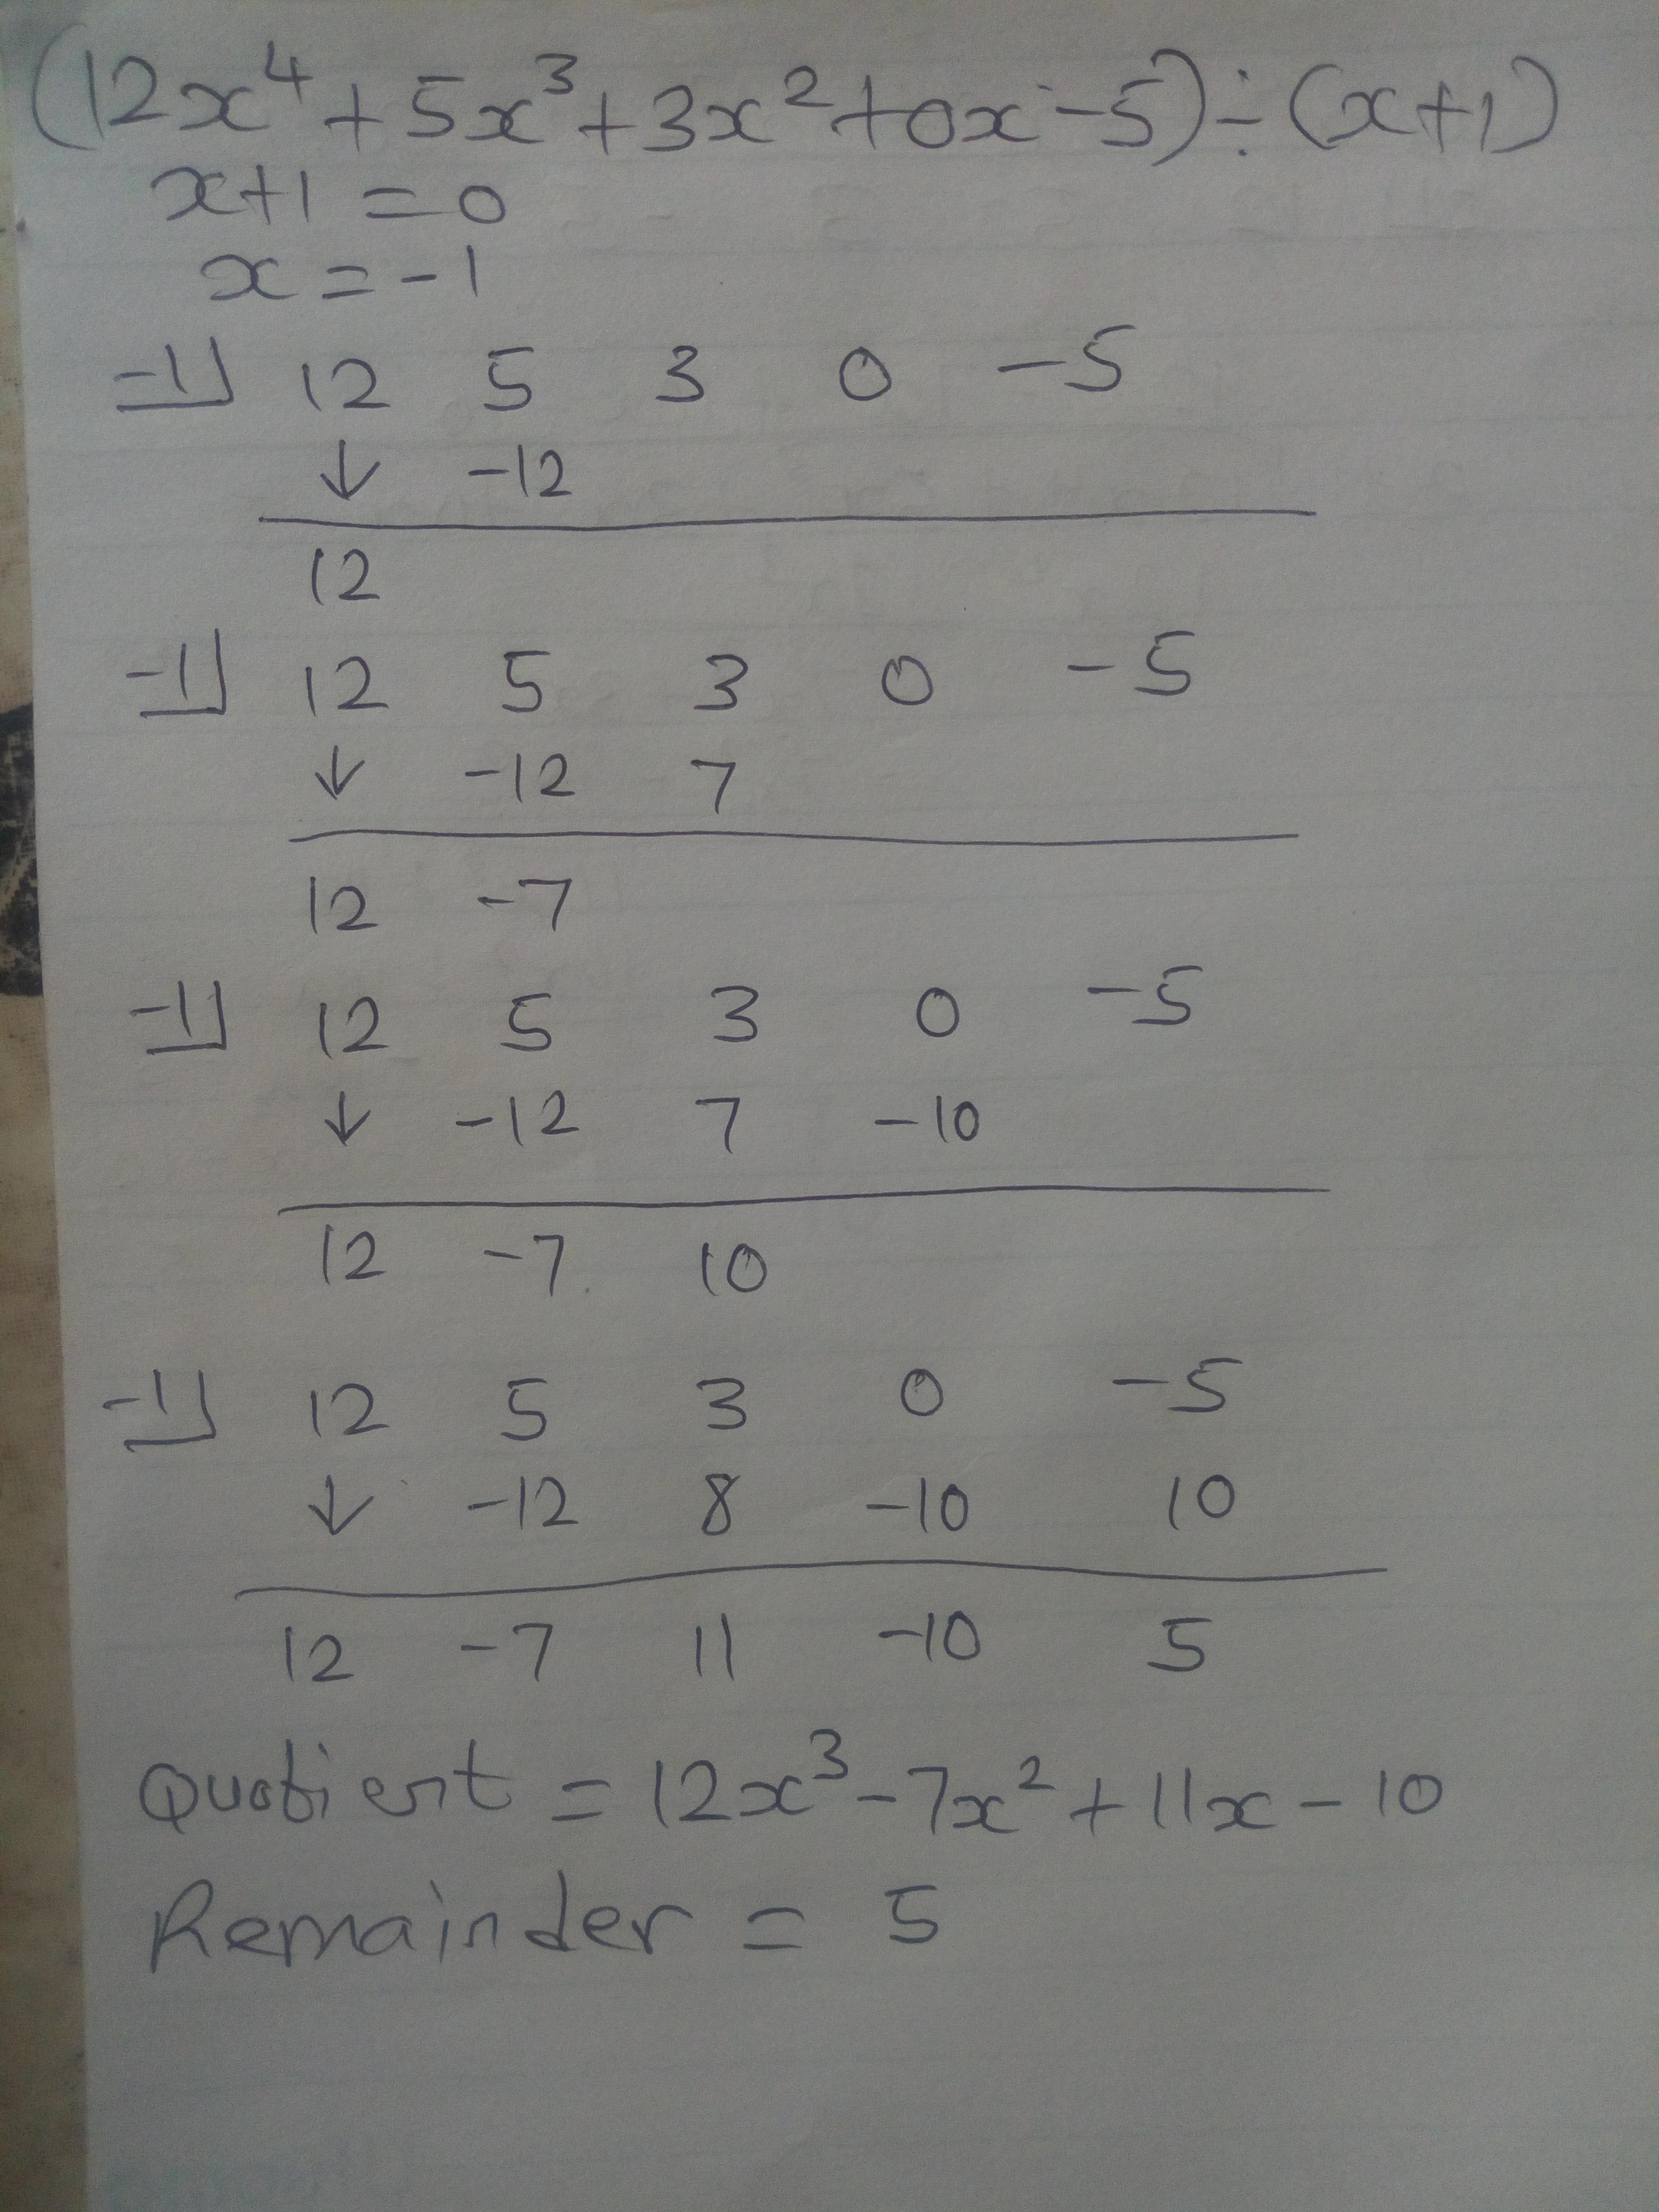 (12x⁴+5x³+3x²+0x-5)÷(x+1)
x+1=0
x=-1
-1⌋ 12 5 3 0 -5
↓ -12
12
-1⌋ 12 5 3 0 -5
↓ -12 7
12 -7
-1⌋ 12 5 3 0 -5
↓ -12 7 -10
12 -7 10
-1⌋ 12 5 3 0 -5
↓ -12 8 -10 10
12 -7 11 -10 5
Quotient = 12x³-7x²+11x-10
Remainder = 5